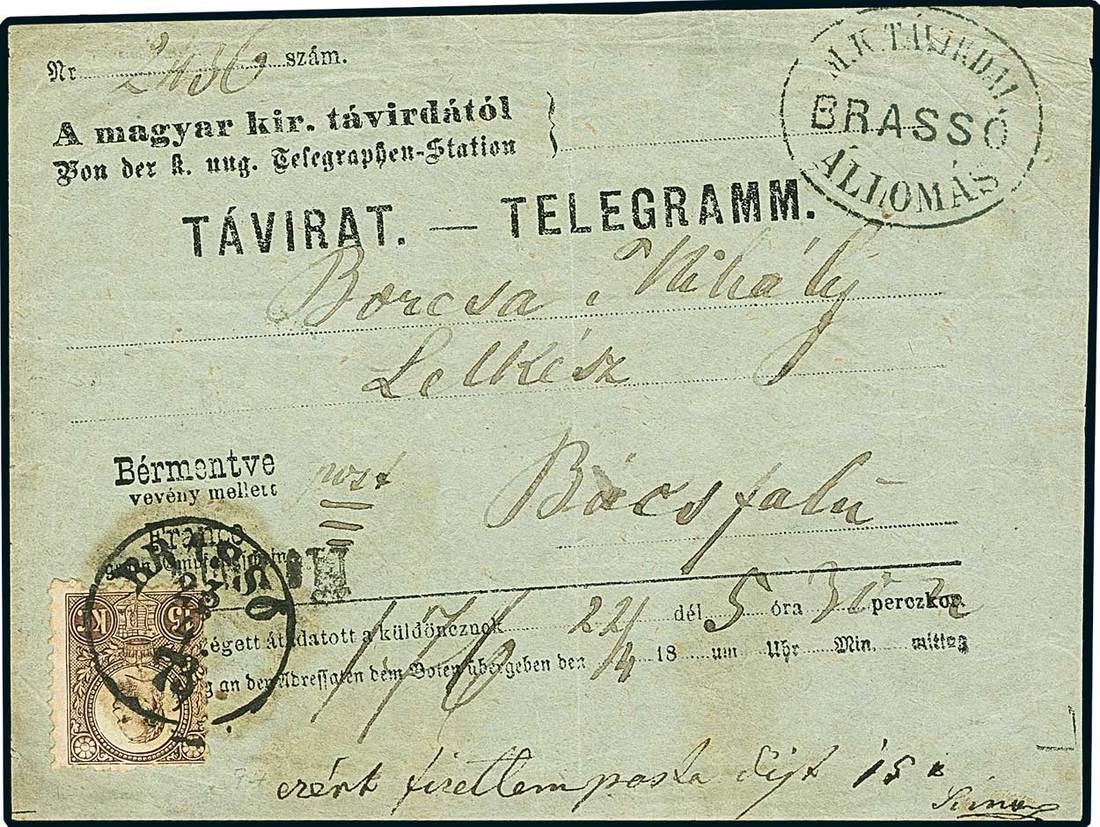 Nr 2436 szám.
M. K. TÁVIRDAI
BRASSÓ
ÁLLOMÁS
A magyar kir. távirdától
Von der k. ung. Telegraphen-Station
TÁVIRAT. — TELEGRAMM.
Borcsa Mihály
Lelkész
Bérmentve
vevény mellett
post
Bácsfalu
Franco
BRASSÓ
15 K
zégett átadatott a küldöncznek 24 dél 5 óra 30 perczkor
g an den Adressaten dem Boten übergeben den 4 18 um Uhr Min. mittag
176
ezért fizettem posta díjt 15 k